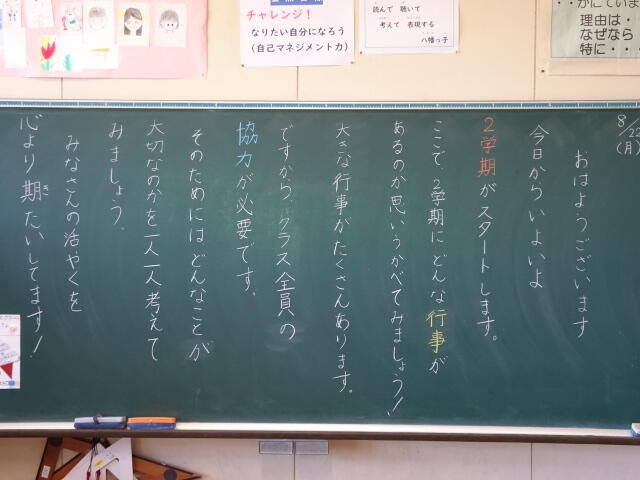 チャレンジ！
なりたい自分になろう
（自己マネジメント力）
読んで 聴いて
考えて 表現する
八幡っ子
理由は・
なぜなら
特に・・・
8/22
（月）
おはようございます
今日からいよいよ
2学期がスタートします。
ここで、2学期にどんな行事が
あるのか思いうかべてみましょう！
大きな行事がたくさんあります。
ですから、クラス全員の
協力が必要です。
そのためにはどんなことが
大切なのかを一人一人考えて
みましょう。
みなさんの活やくを
心より期たいしてます！
き